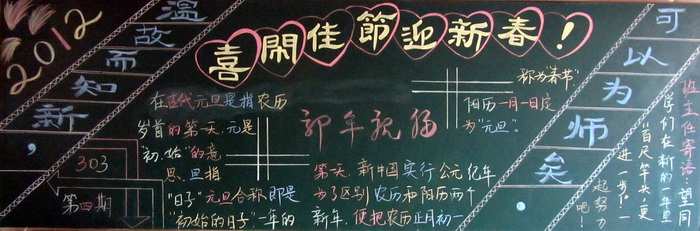 2012
温故而知新，
303
第四期
喜闹佳節迎新春！
在古代元旦是指农历
岁首的第一天。元是
"初、始"的意
思、旦指
"日子"元旦合称即是
"初始的日子"一年的
第一天。新中国实行公元纪年
为了区别农历和阳历两个
新年，便把农历正月初一
称为"春节"
阳历一月一日定
为"元旦"。
可以为师矣
班主任寄语：望同
学们在新的一年里
"百尺竿头，更
进一步！"
一起努力
吧！